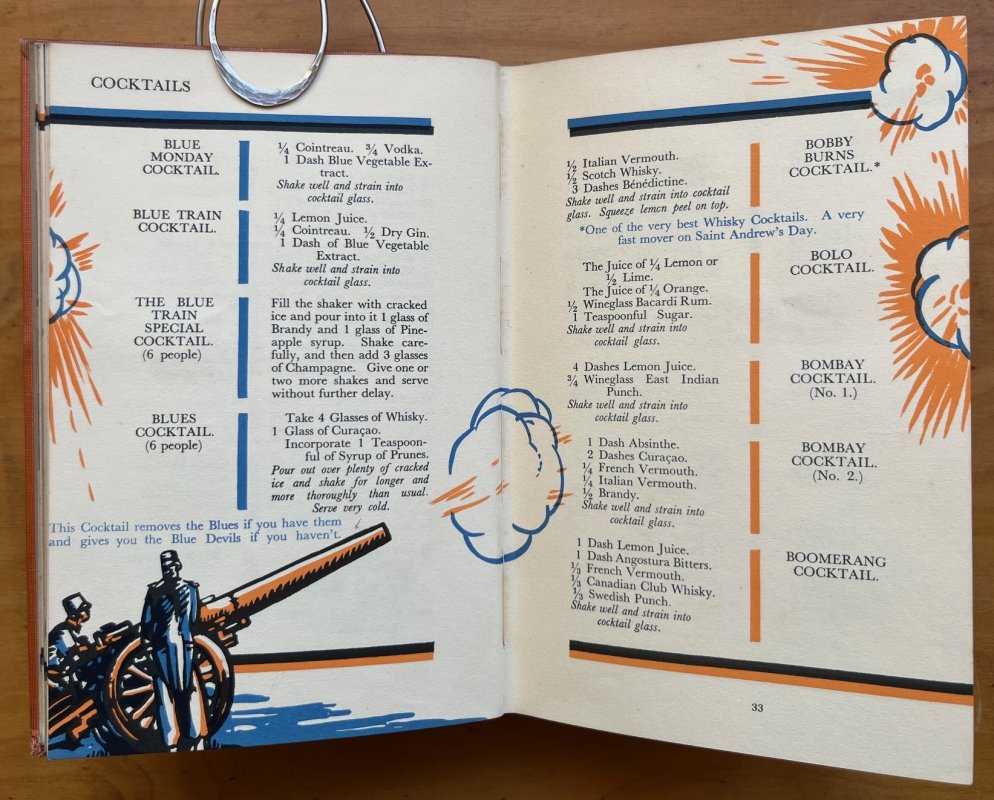 COCKTAILS
BLUE
MONDAY
COCKTAIL.
¼ Cointreau. ¾ Vodka.
1 Dash Blue Vegetable Ex-
tract.
Shake well and strain into
cocktail glass.
BLUE TRAIN
COCKTAIL.
¼ Lemon Juice.
¼ Cointreau. ½ Dry Gin.
1 Dash of Blue Vegetable
Extract.
Shake well and strain into
cocktail glass.
THE BLUE
TRAIN
SPECIAL
COCKTAIL.
(6 people)
Fill the shaker with cracked
ice and pour into it 1 glass of
Brandy and 1 glass of Pine-
apple syrup. Shake care-
fully, and then add 3 glasses
of Champagne. Give one or
two more shakes and serve
without further delay.
BLUES
COCKTAIL.
(6 people)
Take 4 Glasses of Whisky.
1 Glass of Curaçao.
Incorporate 1 Teaspoon-
ful of Syrup of Prunes.
Pour out over plenty of cracked
ice and shake for longer and
more thoroughly than usual.
Serve very cold.
This Cocktail removes the Blues if you have them
and gives you the Blue Devils if you haven't.
BOBBY
BURNS
COCKTAIL.*
½ Italian Vermouth.
½ Scotch Whisky.
3 Dashes Bénédictine.
Shake well and strain into cocktail
glass. Squeeze lemon peel on top.
*One of the very best Whisky Cocktails. A very
fast mover on Saint Andrew's Day.
BOLO
COCKTAIL.
The Juice of ¼ Lemon or
½ Lime.
The Juice of ¼ Orange.
½ Wineglass Bacardi Rum.
1 Teaspoonful Sugar.
Shake well and strain into
cocktail glass.
BOMBAY
COCKTAIL.
(No. 1.)
4 Dashes Lemon Juice.
¾ Wineglass East Indian
Punch.
Shake well and strain into
cocktail glass.
BOMBAY
COCKTAIL.
(No. 2.)
1 Dash Absinthe.
2 Dashes Curaçao.
¼ French Vermouth.
¼ Italian Vermouth.
½ Brandy.
Shake well and strain into
cocktail glass.
BOOMERANG
COCKTAIL.
1 Dash Lemon Juice.
1 Dash Angostura Bitters.
⅓ French Vermouth.
⅓ Canadian Club Whisky.
⅓ Swedish Punch.
Shake well and strain into
cocktail glass.
33